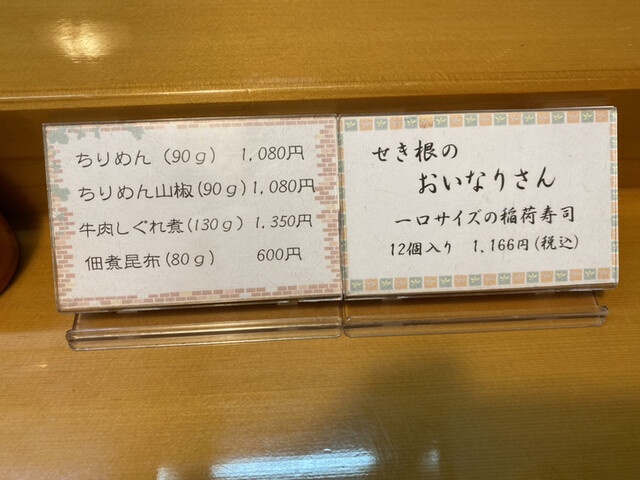 ちりめん(90g) 1,080円
ちりめん山椒(90g) 1,080円
牛肉しぐれ煮(130g) 1,350円
佃煮昆布(80g) 600円
せき根の
おいなりさん
一口サイズの稲荷寿司
12個入り 1,166円(税込)